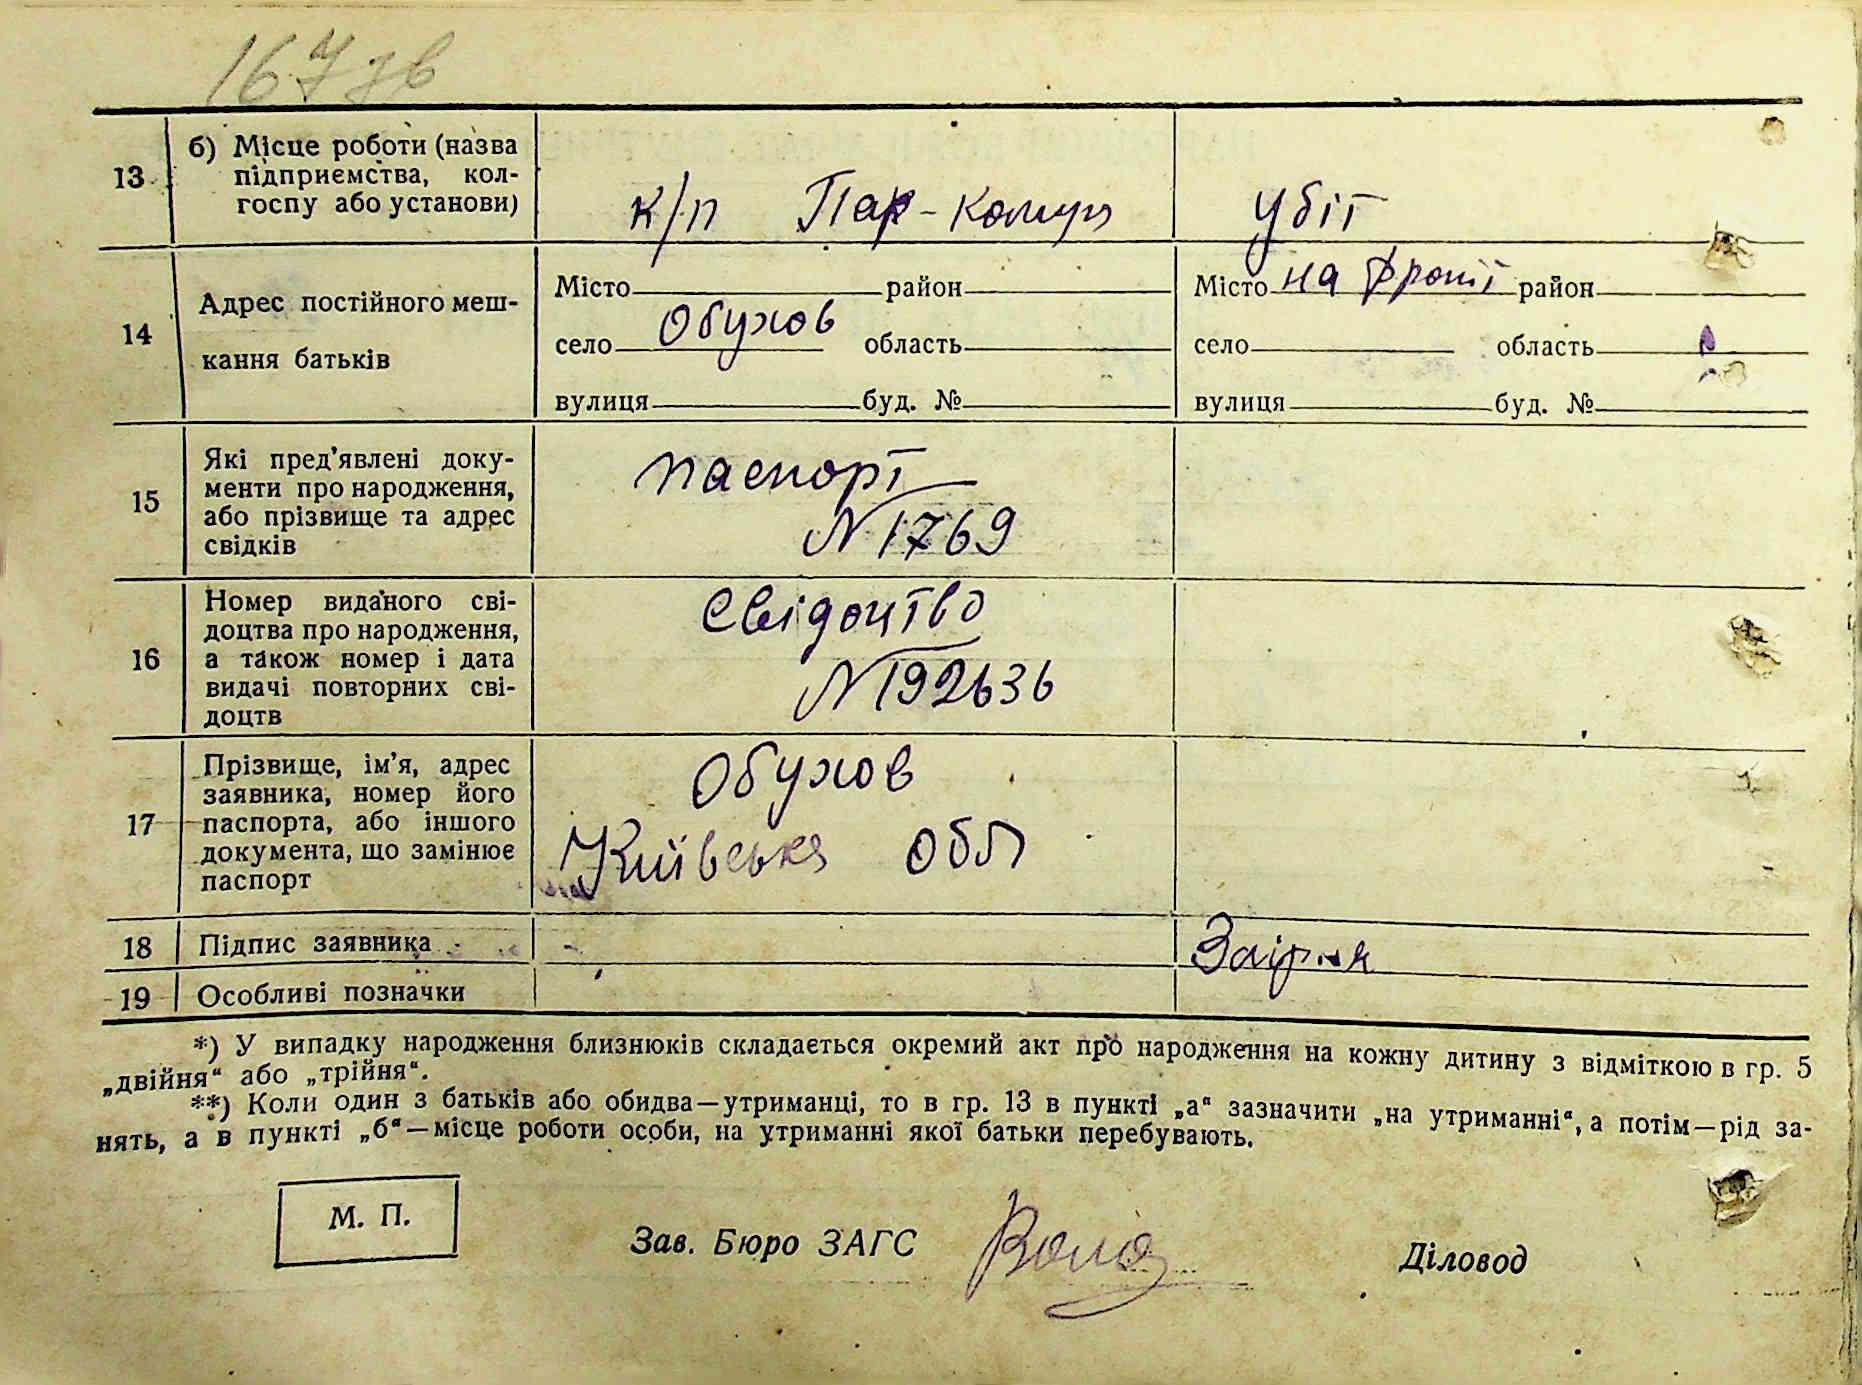 167 зв
13 б) Місце роботи (назва
підприємства, кол-
госпу або установи)
к/п Пар-комун
убіт
14 Адрес постійного меш-
кання батьків
Місто район
село Обухов область
вулиця буд. №
Місто на фронті район
село область
вулиця буд. №
15 Які пред'явлені доку-
менти про народження,
або прізвище та адрес
свідків
паспорт
N 1769
16 Номер виданого сві-
доцтва про народження,
а також номер і дата
видачі повторних сві-
доцтв
Свідоцтво
N 192636
17 Прізвище, ім'я, адрес
заявника, номер його
паспорта, або іншого
документа, що замінює
паспорт
Обухов
Київська обл
18 Підпис заявника
19 Особливі позначки
*) У випадку народження близнюків складається окремий акт про народження на кожну дитину з відміткою в гр. 5
„двійня“ або „трійня“.
**) Коли один з батьків або обидва—утриманці, то в гр. 13 в пункті „а“ зазначити „на утриманні“, а потім—рід за-
нять, а в пункті „б“—місце роботи особи, на утриманні якої батьки перебувають.
М. П.
Зав. Бюро ЗАГС
Діловод